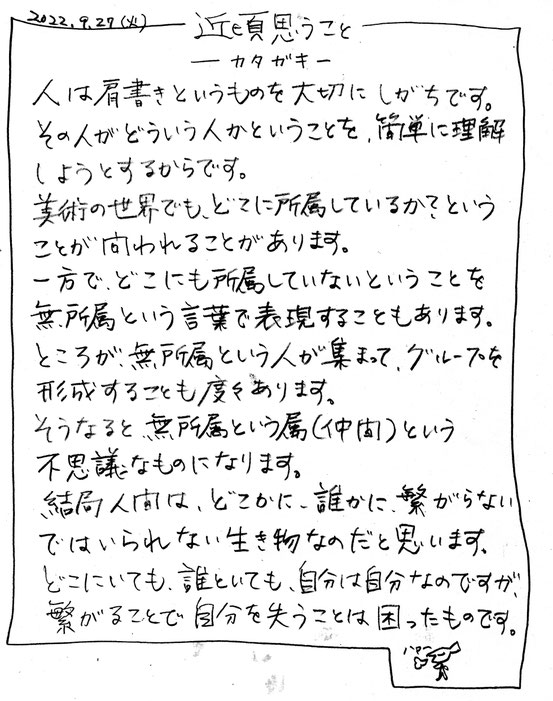 2022.9.27(火)
近頃思うこと
ーカタガキー
人は肩書きというものを大切にしがちです。
その人がどういう人かということを、簡単に理解
しようとするからです。
美術の世界でも、どこに所属しているか？という
ことが問われることがあります。
一方で、どこにも所属していないということを
無所属という言葉で表現することもあります。
ところが、無所属という人が集まって、グループを
形成することも度々あります。
そうなると、無所属という属(仲間)という
不思議なものになります。
結局人間は、どこかに、誰かに、繋がらない
ではいられない生き物なのだと思います。
どこにいても、誰といても、自分は自分なのですが、
繋がることで自分を失うことは困ったものです。